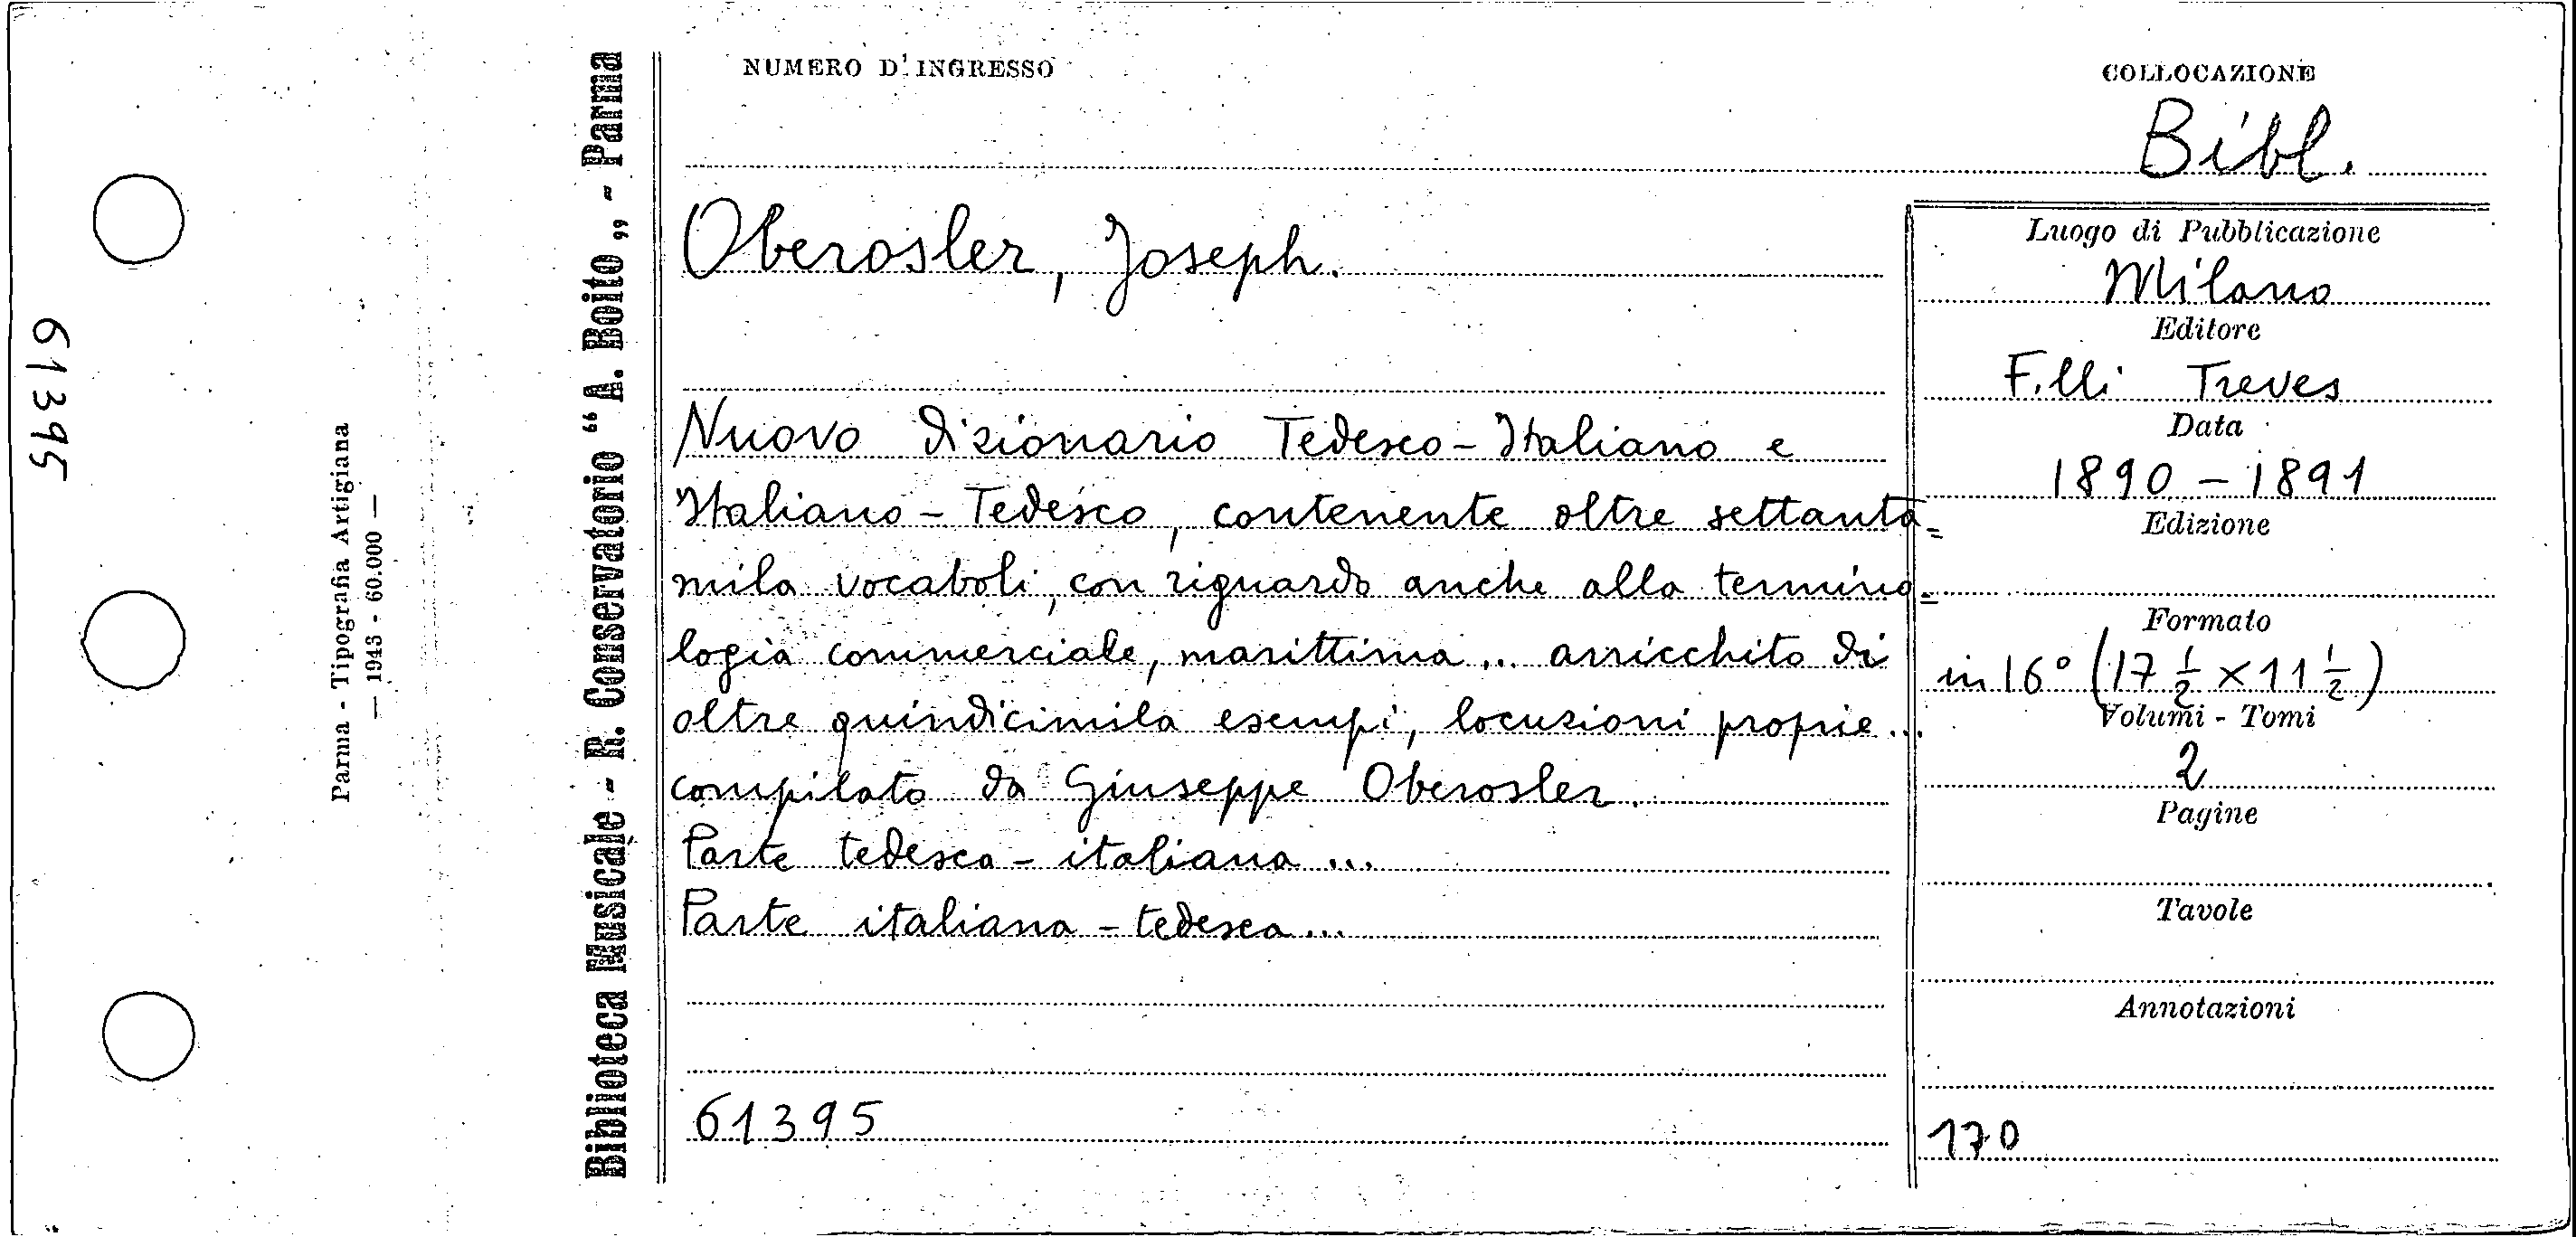 61395
Parma - Tipografia Artigiana
— 1943 - 60.000 —
Biblioteca Musicale - R. Conservatorio “A. Boito„ - Parma
NUMERO D'INGRESSO
COLLOCAZIONE
Bibl.
Oberosler, Joseph.
Nuovo dizionario Tedesco-Italiano e
Italiano-Tedesco, contenente oltre settanta=
mila vocaboli, con riguardo anche alla termino=
logia commerciale, marittima... arricchito di
oltre quindicimila esempi, locuzioni proprie...
compilato da Giuseppe Oberosler.
Parte tedesca-italiana...
Parte italiana-tedesca...
61395
Luogo di Pubblicazione
Milano
Editore
F.lli Treves
Data
1890-1891
Edizione
Formato
in 16° (17 ½ × 11 ½)
Volumi - Tomi
2
Pagine
Tavole
Annotazioni
170